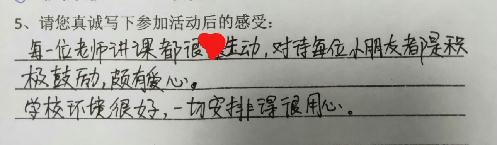 5、请您真诚写下参加活动后的感受:
每一位老师讲课都很生动,对待每位小朋友都是积
极鼓励,颇有爱心。
学校环境很好,一切安排得很用心。